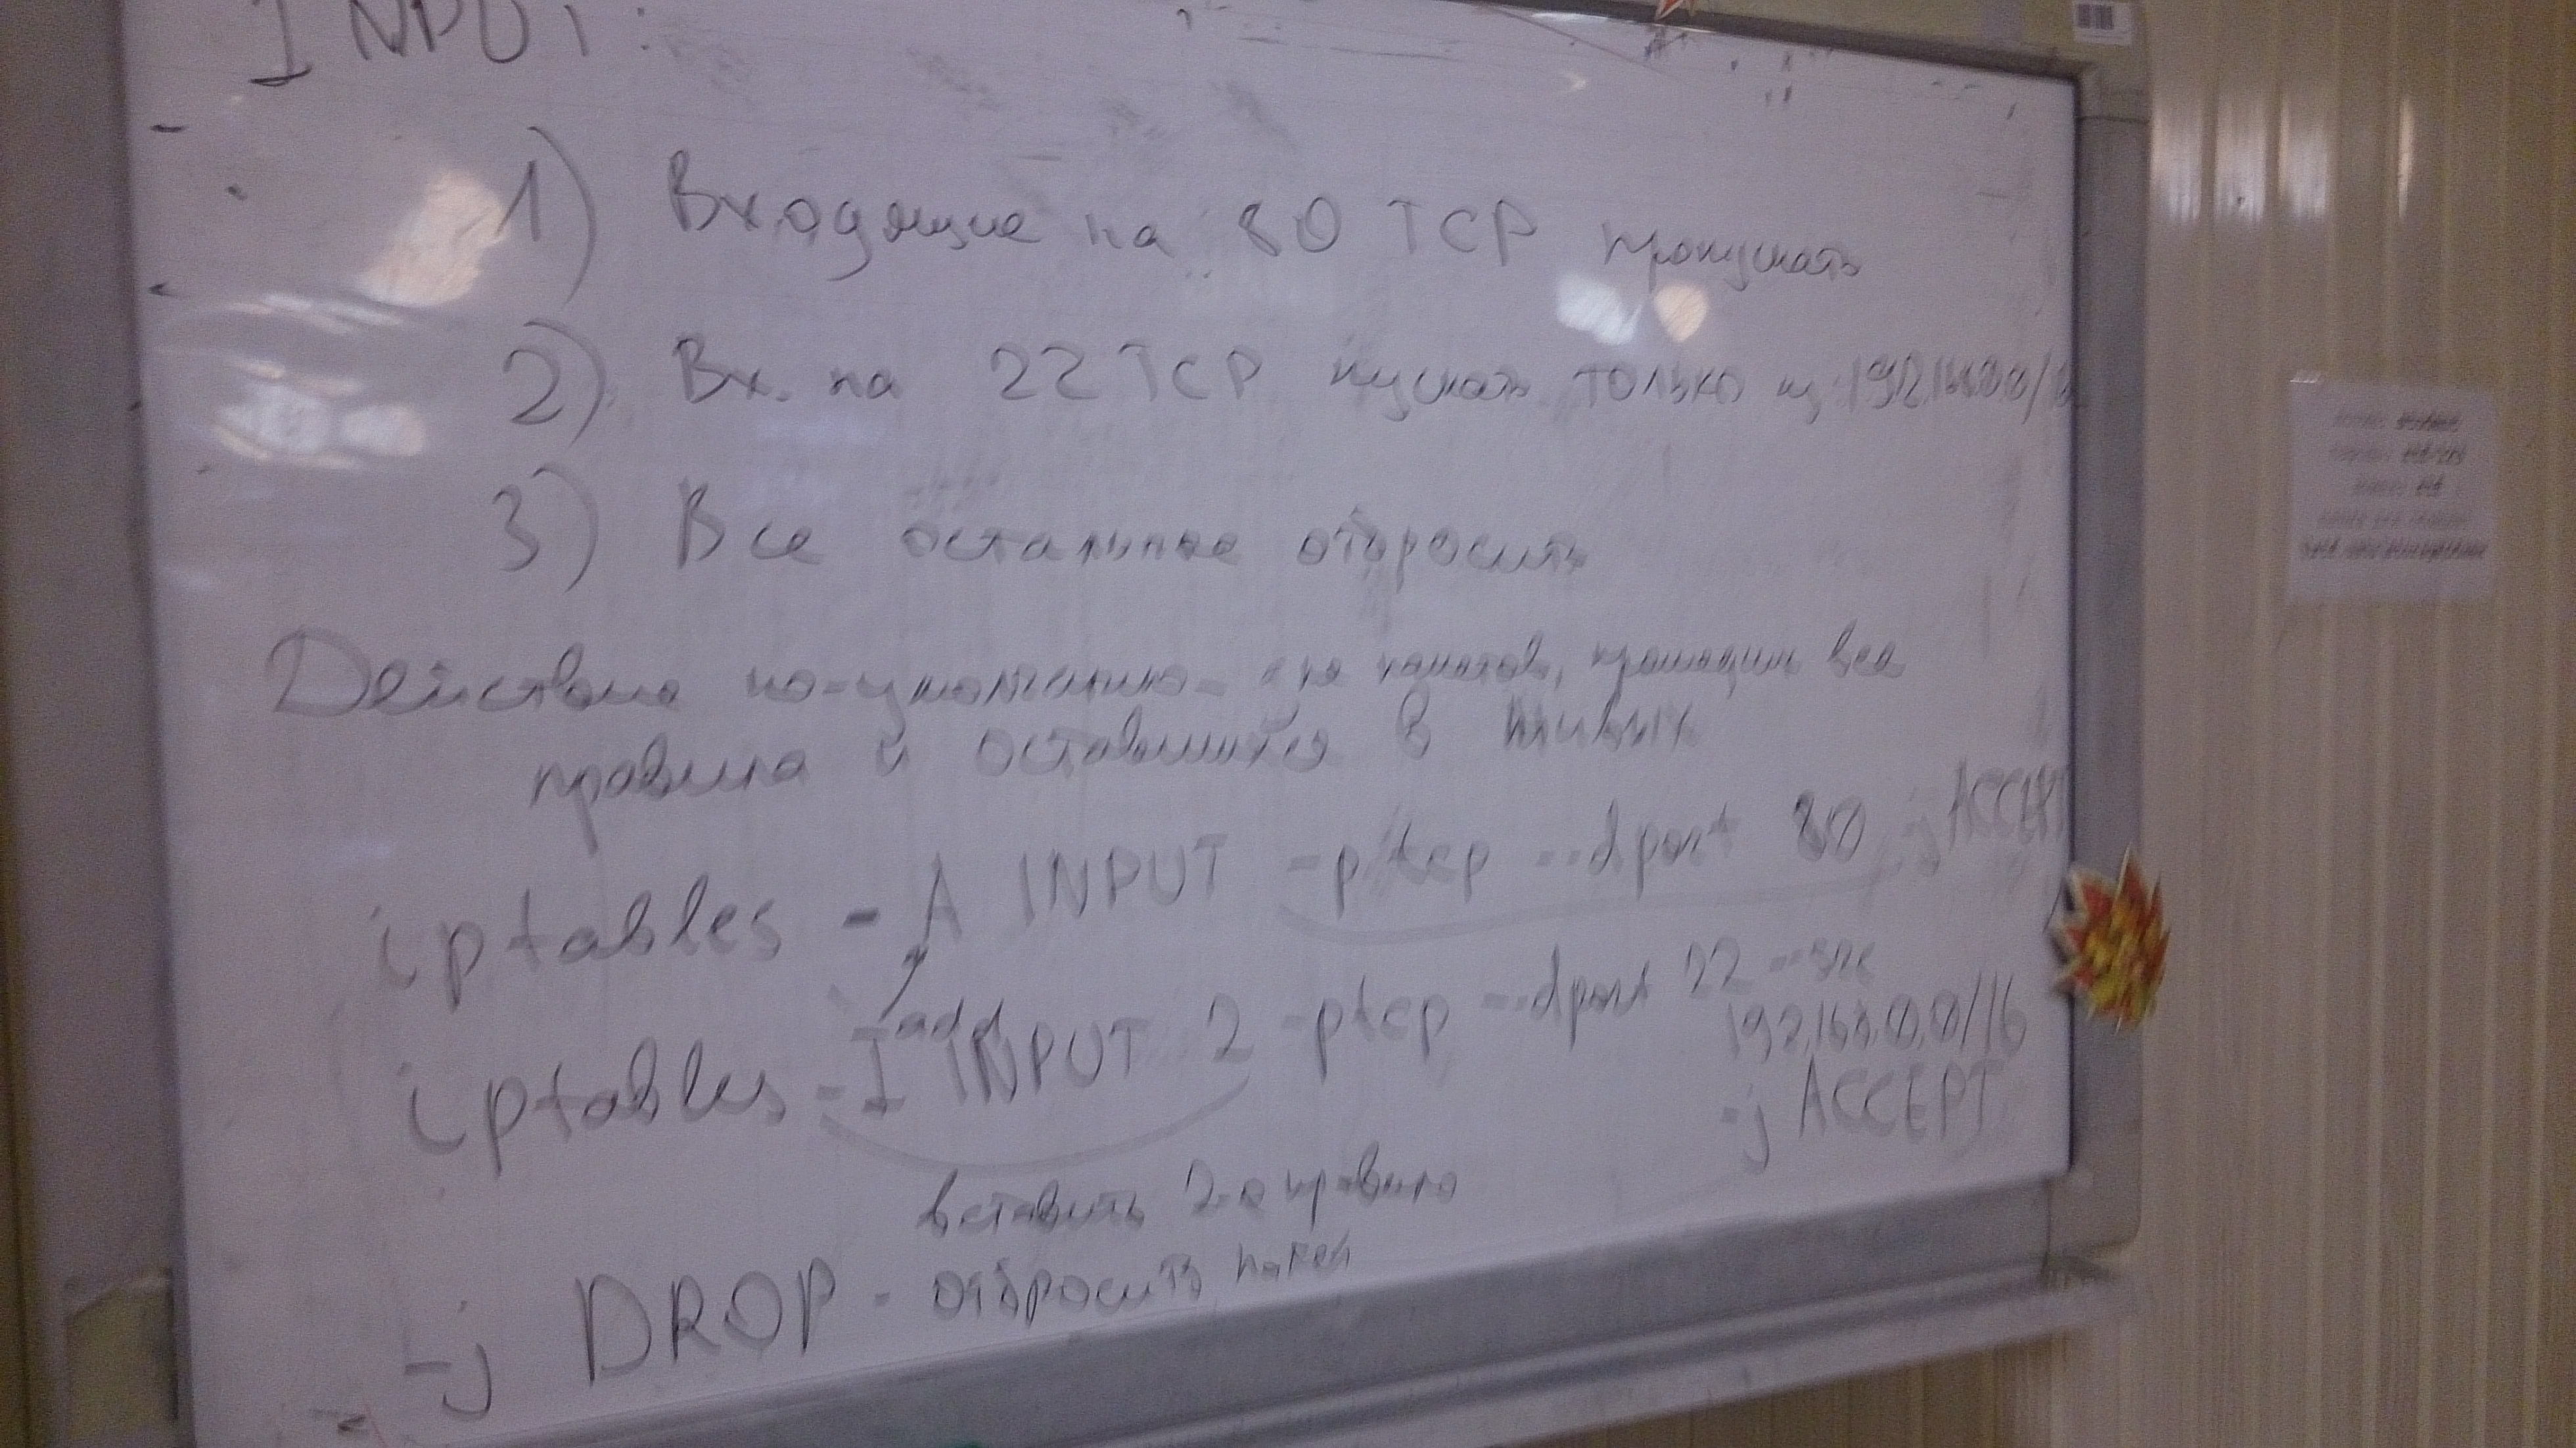 INPUT:
1) Входящие на 80 TCP пропускать
2) Вх. на 22 TCP пускать только из 192.168.0.0/
3) Все остальное отбросить
Действие по-умолчанию - для пакетов, прошедших все
правила и оставшихся в живых
iptables -A INPUT -p tcp --dport 80 -j ACCEPT
add
iptables -I INPUT 2 -p tcp --dport 22 --src
192.168.0.0/16
-j ACCEPT
вставить 2-е правило
-j DROP - отбросить пакет